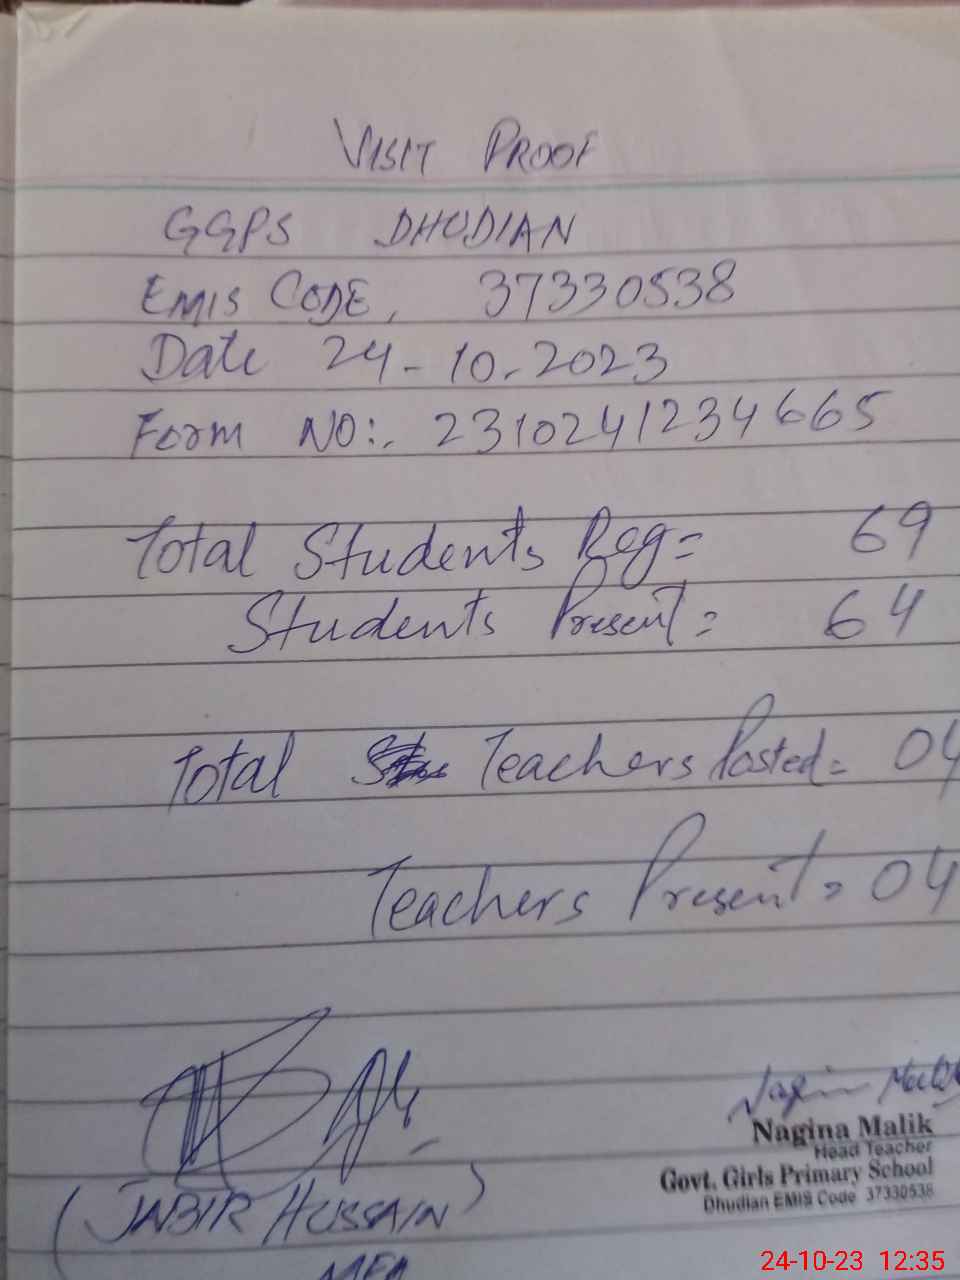 VISIT PROOF
GGPS DHUDIAN
EMIS CODE, 37330538
Date 24-10-2023
Form NO:- 2310241234665
Total Students Reg= 69
Students Present= 64
Total Teachers Posted= 04
Teachers Present= 04
Nagina Malik
Nagina Malik
Head Teacher
Govt. Girls Primary School
Dhudian EMIS Code 37330538
(JABIR HUSSAIN)
MEA
24-10-23 12:35